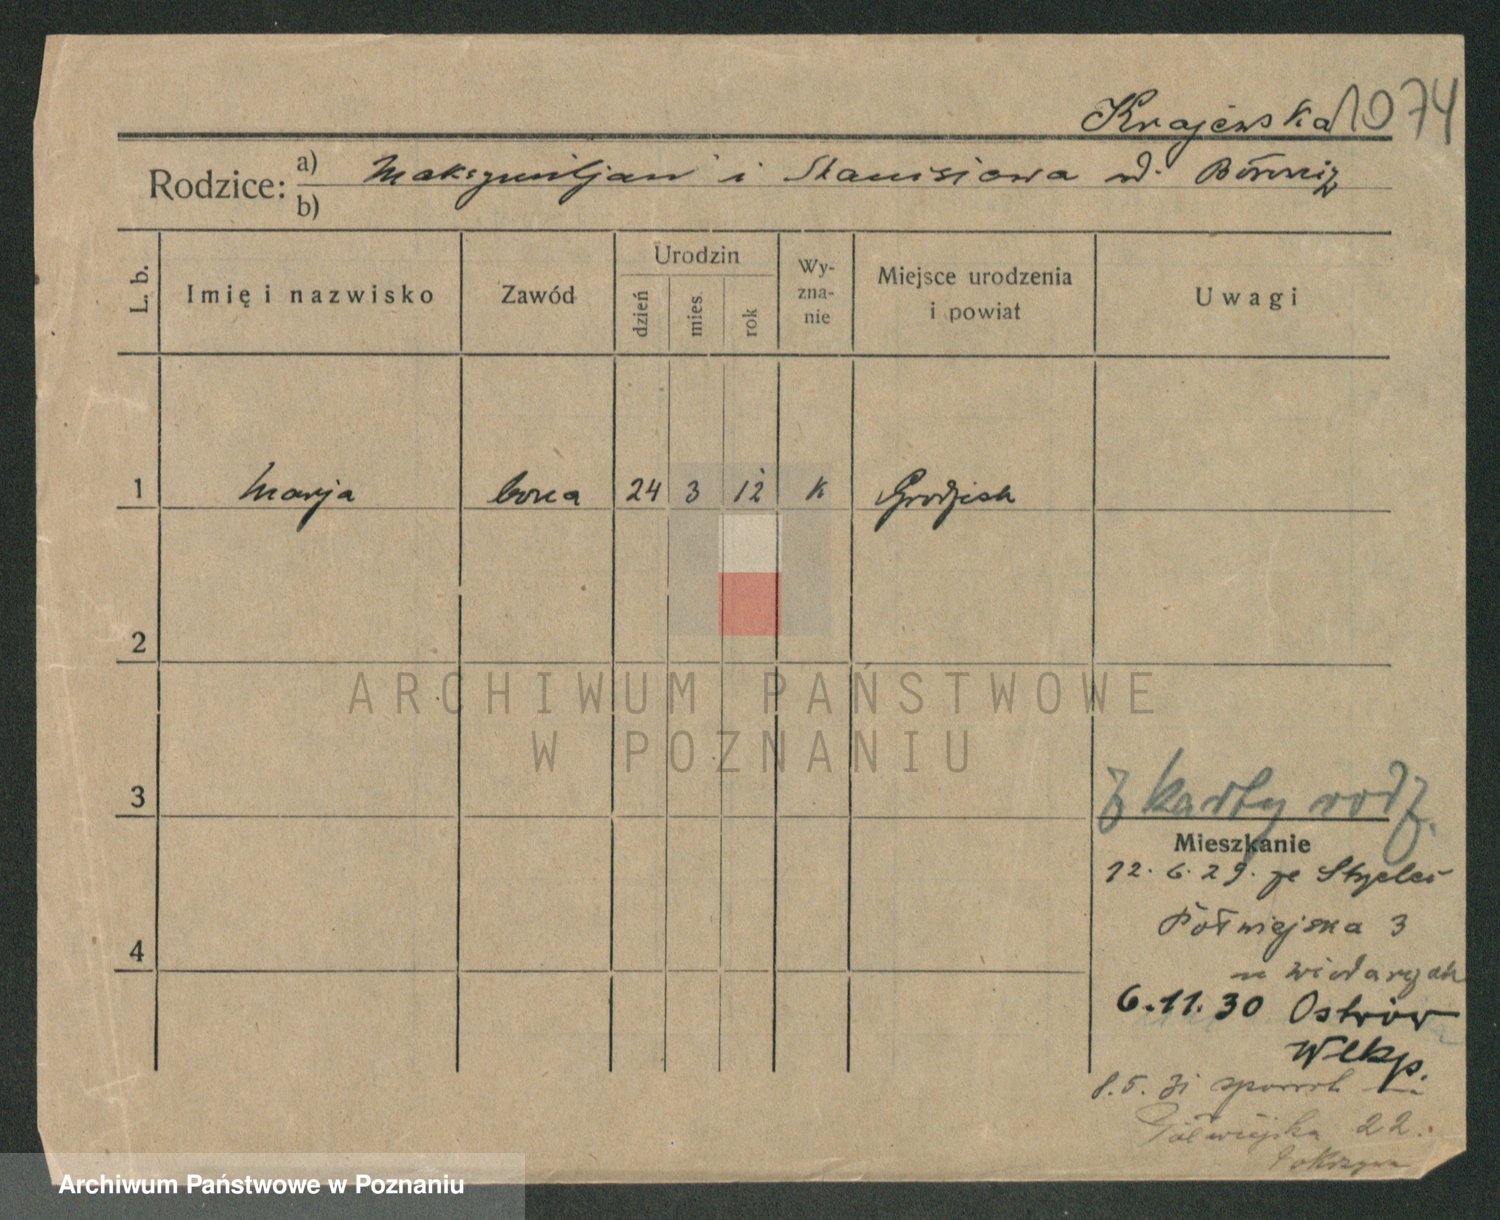 Krajewska 1074
Rodzice: a) Maksymiljan i Stanisłowa
b)
L. b.
Imię i nazwisko
Zawód
Urodzin
dzień
mies.
rok
Wy-
zna-
nie
Miejsce urodzenia
i powiat
Uwagi
1 Marja córka 24 3 12 k Grodzisk
2
3
4
ARCHIWUM PAŃSTWOWE
W POZNANIU
z karty rodz.
Mieszkanie
12. 6. 29. ze
Półwiejska 3
6.11.30 Ostrów
Wlkp.
8.5.31
Półwiejska 22.
Archiwum Państwowe w Poznaniu